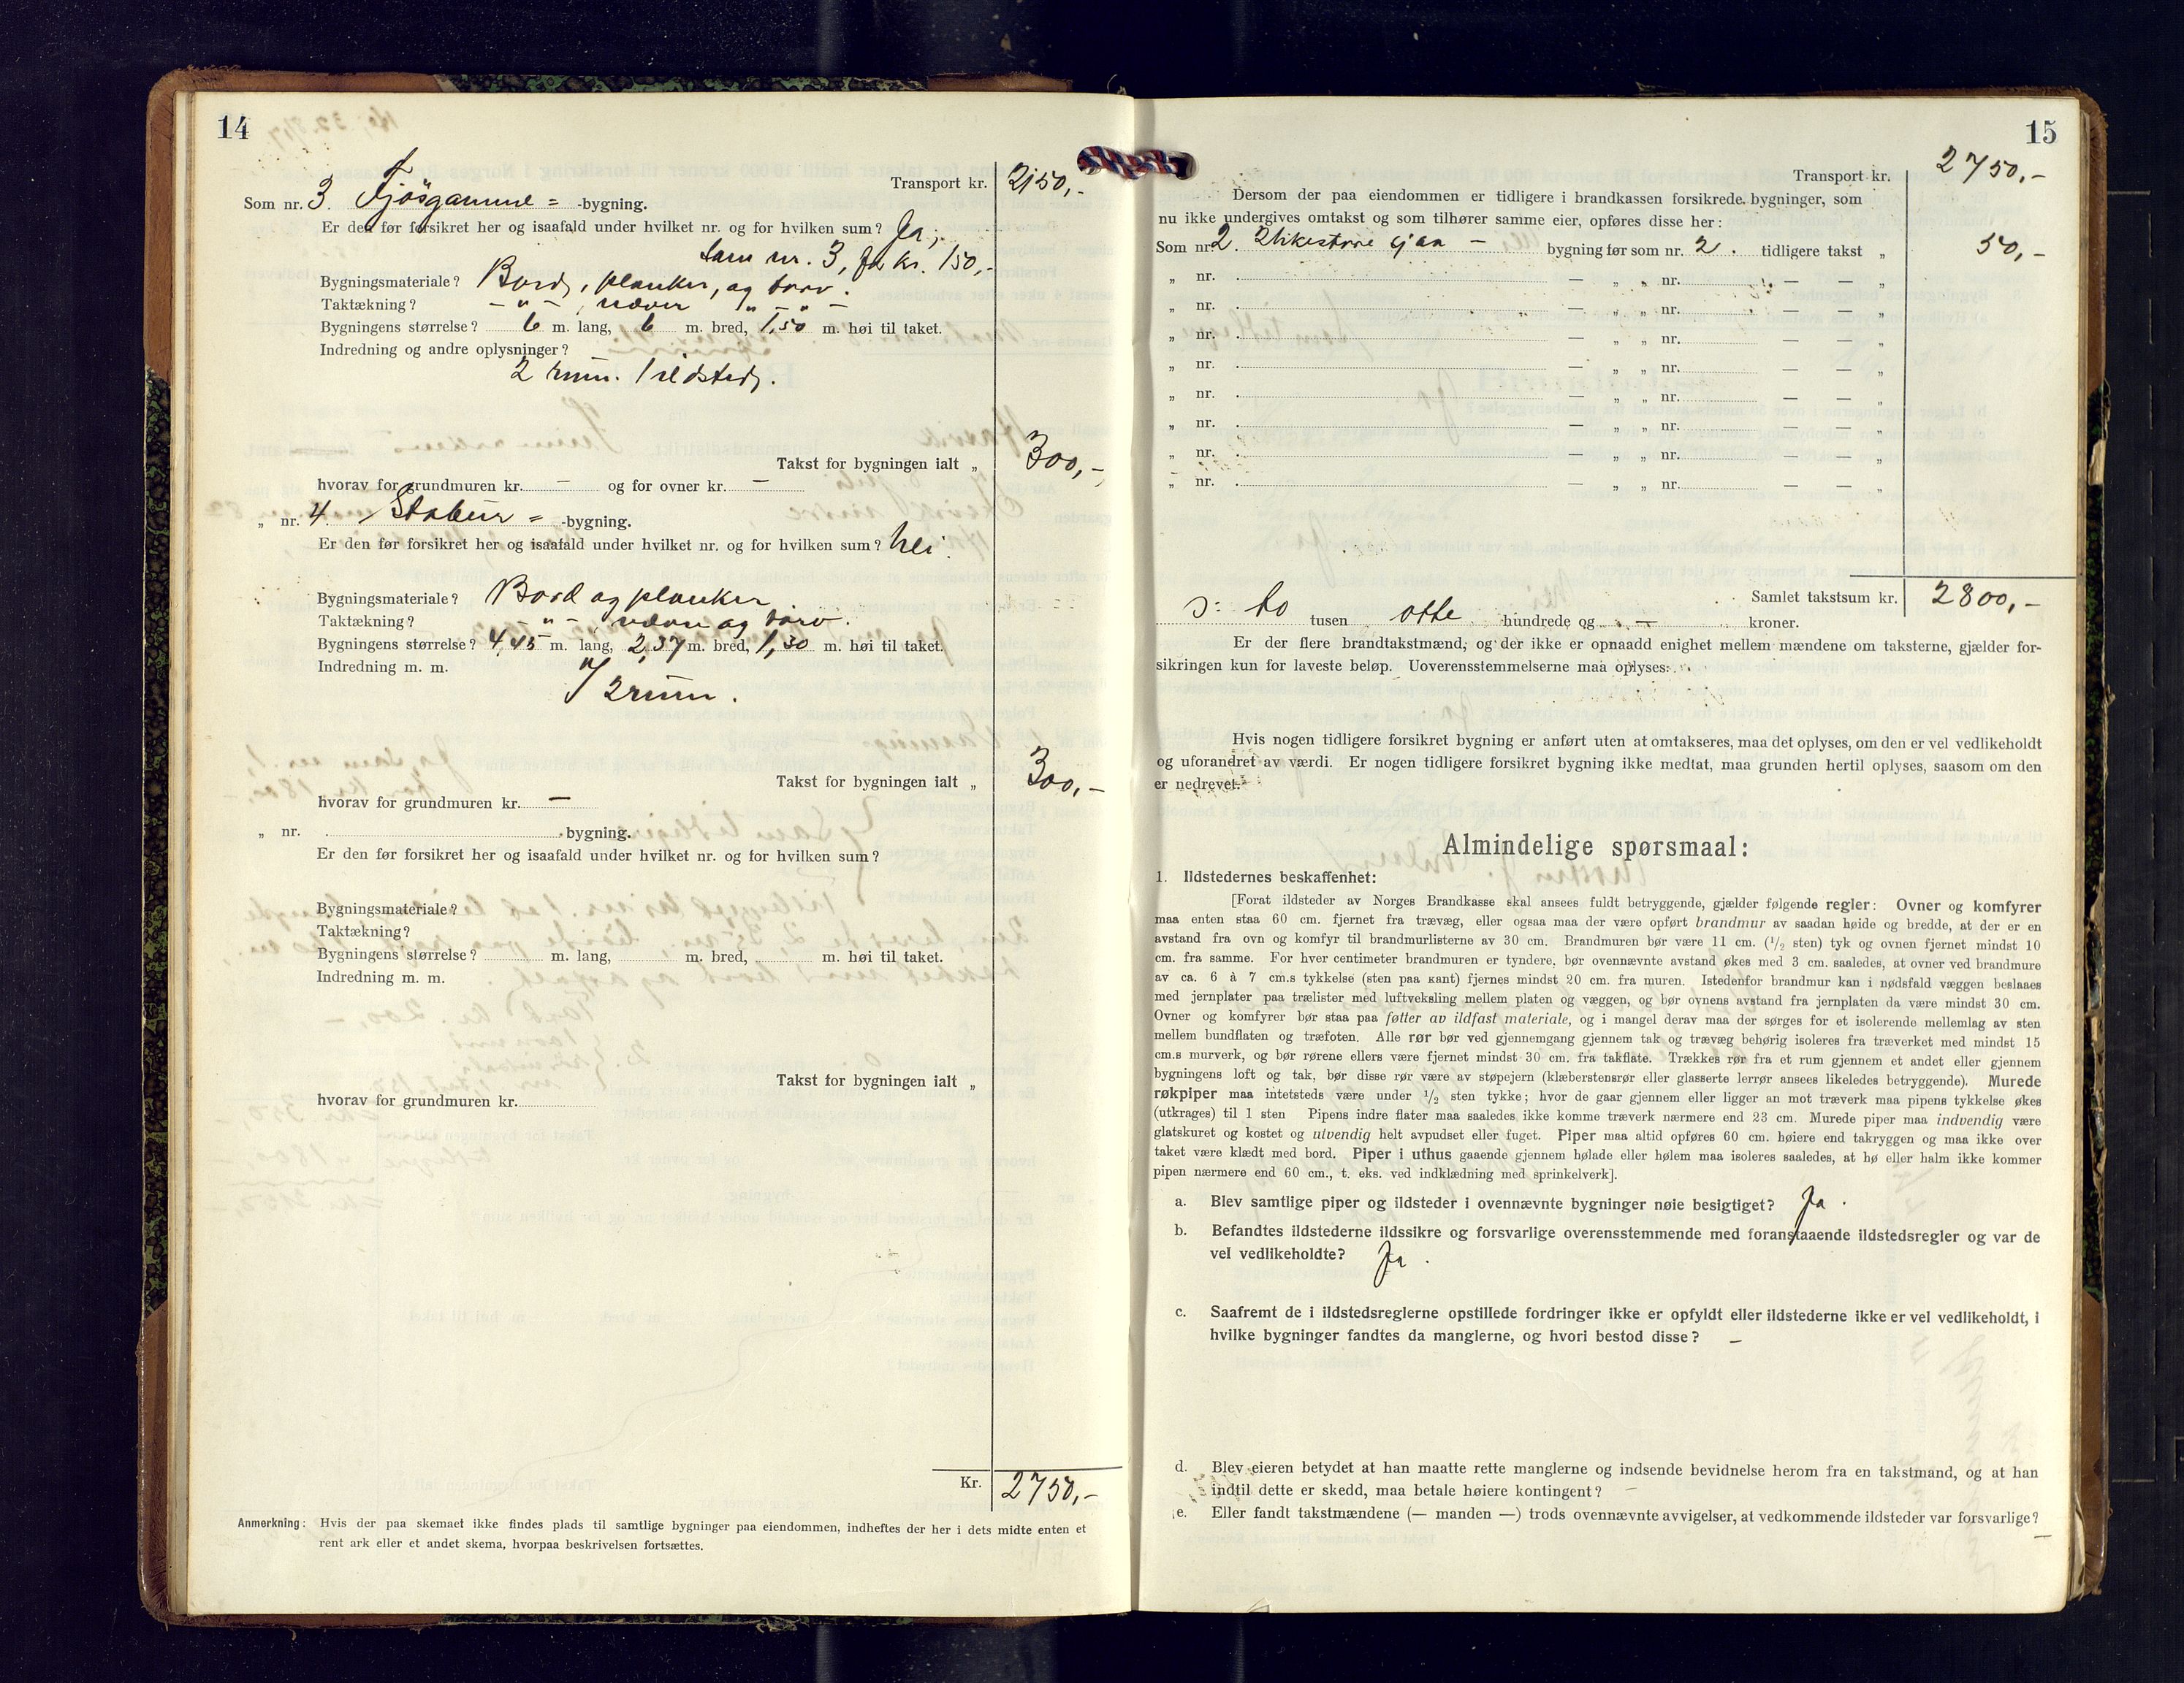 14
Transport kr. 2150,-
Som nr. 3. Fjösgamme = -bygning.
Er den før forsikret her og isaafald under hvilket nr. og for hvilken sum? Ja,
som nr. 3, for kr. 150,-
Bygningsmateriale? Bord, planker, og torv.
Taktækning? - " - , næver " - " -
Bygningens størrelse? 6 m. lang, 6 m. bred, 1,50 m. høi til taket.
Indredning og andre oplysninger?
2 rum. 1 ildsted.
Takst for bygningen ialt „ 300,-
hvorav for grundmuren kr. — og for ovner kr. —
„ nr. 4. Stabur = -bygning.
Er den før forsikret her og isaafald under hvilket nr. og for hvilken sum? Nei.
Bygningsmateriale? Bord og planker
Taktækning? - " - , næver og torv.
Bygningens størrelse? 4,45 m. lang, 2,37 m. bred, 1,30 m. høi til taket.
Indredning m. m.
2 rum.
Takst for bygningen ialt „ 300,-
hvorav for grundmuren kr. —
„ nr. bygning.
Er den før forsikret her og isaafald under hvilket nr. og for hvilken sum?
Bygningsmateriale?
Taktækning?
Bygningens størrelse? m. lang, m. bred, m. høi til taket.
Indredning m. m.
Takst for bygningen ialt „
hvorav for grundmuren kr.
Kr. 2750,-
Anmerkning: Hvis der paa skemaet ikke findes plads til samtlige bygninger paa eiendommen, indheftes der her i dets midte enten et
rent ark eller et andet skema, hvorpaa beskrivelsen fortsættes.
15
Transport kr. 2750,-
Dersom der paa eiendommen er tidligere i brandkassen forsikrede bygninger, som
nu ikke undergives omtakst og som tilhører samme eier, opføres disse her:
Som nr. 2. — bygning før som nr. 2. tidligere takst „ 50,-
„ nr. — „ „ nr. — — „
„ nr. — „ „ nr. — — „
„ nr. — „ „ nr. — — „
„ nr. — „ „ nr. — — „
„ nr. — „ „ nr. — — „
„ nr. — „ „ nr. — — „
„ nr. — „ „ nr. — — „
„ nr. — „ „ nr. — — „
Samlet takstsum kr. 2800,-
to tusen otte hundrede og — kroner.
Er der flere brandtakstmænd, og der ikke er opnaadd enighet mellem mændene om taksterne, gjælder for-
sikringen kun for laveste beløp. Uoverensstemmelserne maa oplyses:
Hvis nogen tidligere forsikret bygning er anført uten at omtakseres, maa det oplyses, om den er vel vedlikeholdt
og uforandret av værdi. Er nogen tidligere forsikret bygning ikke medtat, maa grunden hertil oplyses, saasom om den
er nedrevet.
Almindelige spørsmaal:
1. Ildstedernes beskaffenhet:
[Forat ildsteder av Norges Brandkasse skal ansees fuldt betryggende, gjælder følgende regler: Ovner og komfyrer
maa enten staa 60 cm. fjernet fra trævæg, eller ogsaa maa der være opført brandmur av saadan høide og bredde, at der er en
avstand fra ovn og komfyr til brandmurlisterne av 30 cm. Brandmuren bør være 11 cm. (1/2 sten) tyk og ovnen fjernet mindst 10
cm. fra samme. For hver centimeter brandmuren er tyndere, bør ovennævnte avstand økes med 3 cm. saaledes, at ovner ved brandmure
av ca. 6 à 7 cm.s tykkelse (sten paa kant) fjernes mindst 20 cm. fra muren. Istedenfor brandmur kan i nødsfald væggen beslaaes
med jernplater paa trælister med luftveksling mellem platen og væggen, og bør ovnens avstand fra jernplaten da være mindst 30 cm.
Ovner og komfyrer bør staa paa føtter av ildfast materiale, og i mangel derav maa der sørges for et isolerende mellemlag av sten
mellem bundflaten og træfoten. Alle rør bør ved gjennemgang gjennem tak og trævæg behørig isoleres fra træverket med mindst 15
cm.s murverk, og bør rørene ellers være fjernet mindst 30 cm. fra takflate. Trækkes rør fra et rum gjennem et andet eller gjennem
bygningens loft og tak, bør disse rør være av støpejern (klæberstensrør eller glasserte lerrør ansees likeledes betryggende). Murede
røkpiper maa intetsteds være under 1/2 sten tykke; hvor de gaar gjennem eller ligger an mot træverk maa pipens tykkelse økes
(utkrages) til 1 sten Pipens indre flater maa saaledes ikke komme træverk nærmere end 23 cm. Murede piper maa indvendig være
glatskuret og kostet og utvendig helt avpudset eller fuget. Piper maa altid opføres 60 cm. høiere end takryggen og maa ikke over
taket være klædt med bord. Piper i uthus gaaende gjennem hølade eller hølem maa isoleres saaledes, at hø eller halm ikke kommer
pipen nærmere end 60 cm., t. eks. ved indklædning med sprinkelverk].
a. Blev samtlige piper og ildsteder i ovennævnte bygninger nøie besigtiget? Ja.
b. Befandtes ildstederne ildssikre og forsvarlige overensstemmende med foranstaaende ildstedsregler og var de
vel vedlikeholdte? Ja.
c. Saafremt de i ildstedsreglerne opstillede fordringer ikke er opfyldt eller ildstederne ikke er vel vedlikeholdt, i
hvilke bygninger fandtes da manglerne, og hvori bestod disse? —
d. Blev eieren betydet at han maatte rette manglerne og indsende bevidnelse herom fra en takstmand, og at han
indtil dette er skedd, maa betale høiere kontingent? —
e. Eller fandt takstmændene (— manden —) trods ovennævnte avvigelser, at vedkommende ildsteder var forsvarlige?
—